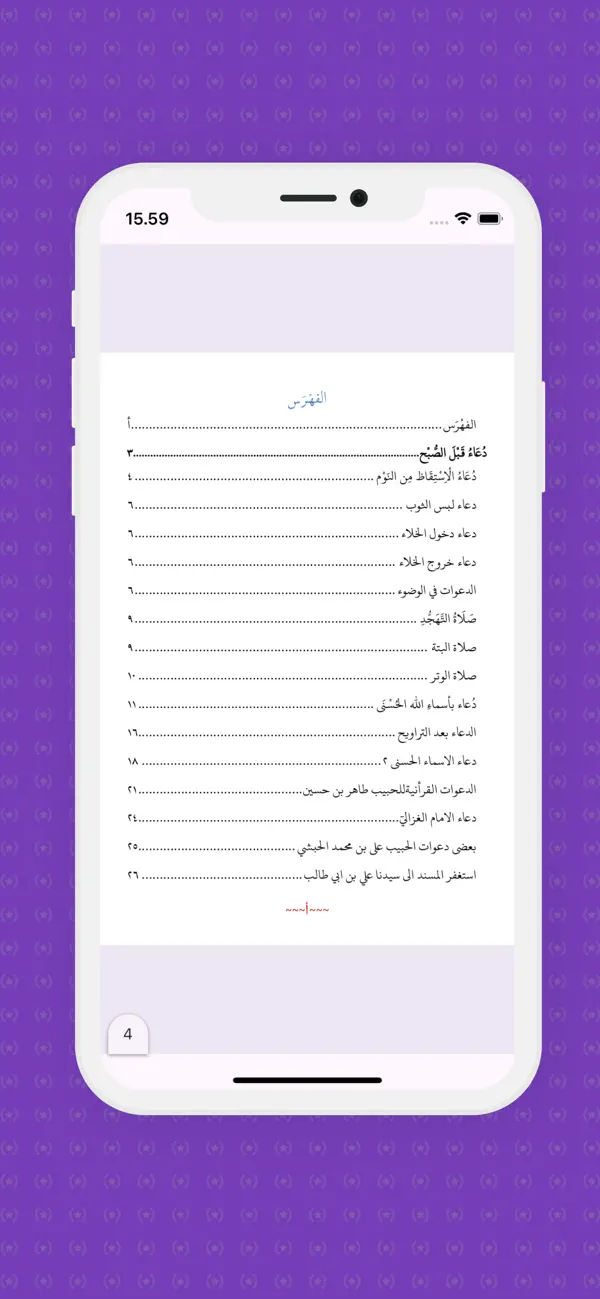 15.59
الفِهْرَس
الفِهْرَس................................................أ
دُعَاءُ قَبْلَ الصُّبْح................................................٣
دُعَاءُ الْاِسْتِقَاظ مِن النَوْم ................................................ ٤
دعاء لبس الثوب ................................................ ٦
دعاء دخول الخلاء ................................................ ٦
دعاء خروج الخلاء ................................................ ٦
الدعوات في الوضوء ................................................ ٦
صَلَاةُ التَّهَجُّدِ ................................................ ٩
صلاة البتة ................................................ ٩
صلاة الوتر ................................................ ١٠
دُعاء بأسماءِ الله الحُسْنَى ................................................ ١١
الدعاء بعد التراويح ................................................١٦
دعاء الاسماء الحسنى ٢ ................................................ ١٨
الدعوات القرأنيةللحبيب طاهر بن حسين................................................٢١
دعاء الامام الغزاليّ................................................٢٤
بعضى دعوات الحبيب على بن محمد الحبشي ................................................٢٥
استغفر المسند الى سيدنا علي بن ابي طالب ................................................ ٢٦
~~~أ~~~
4